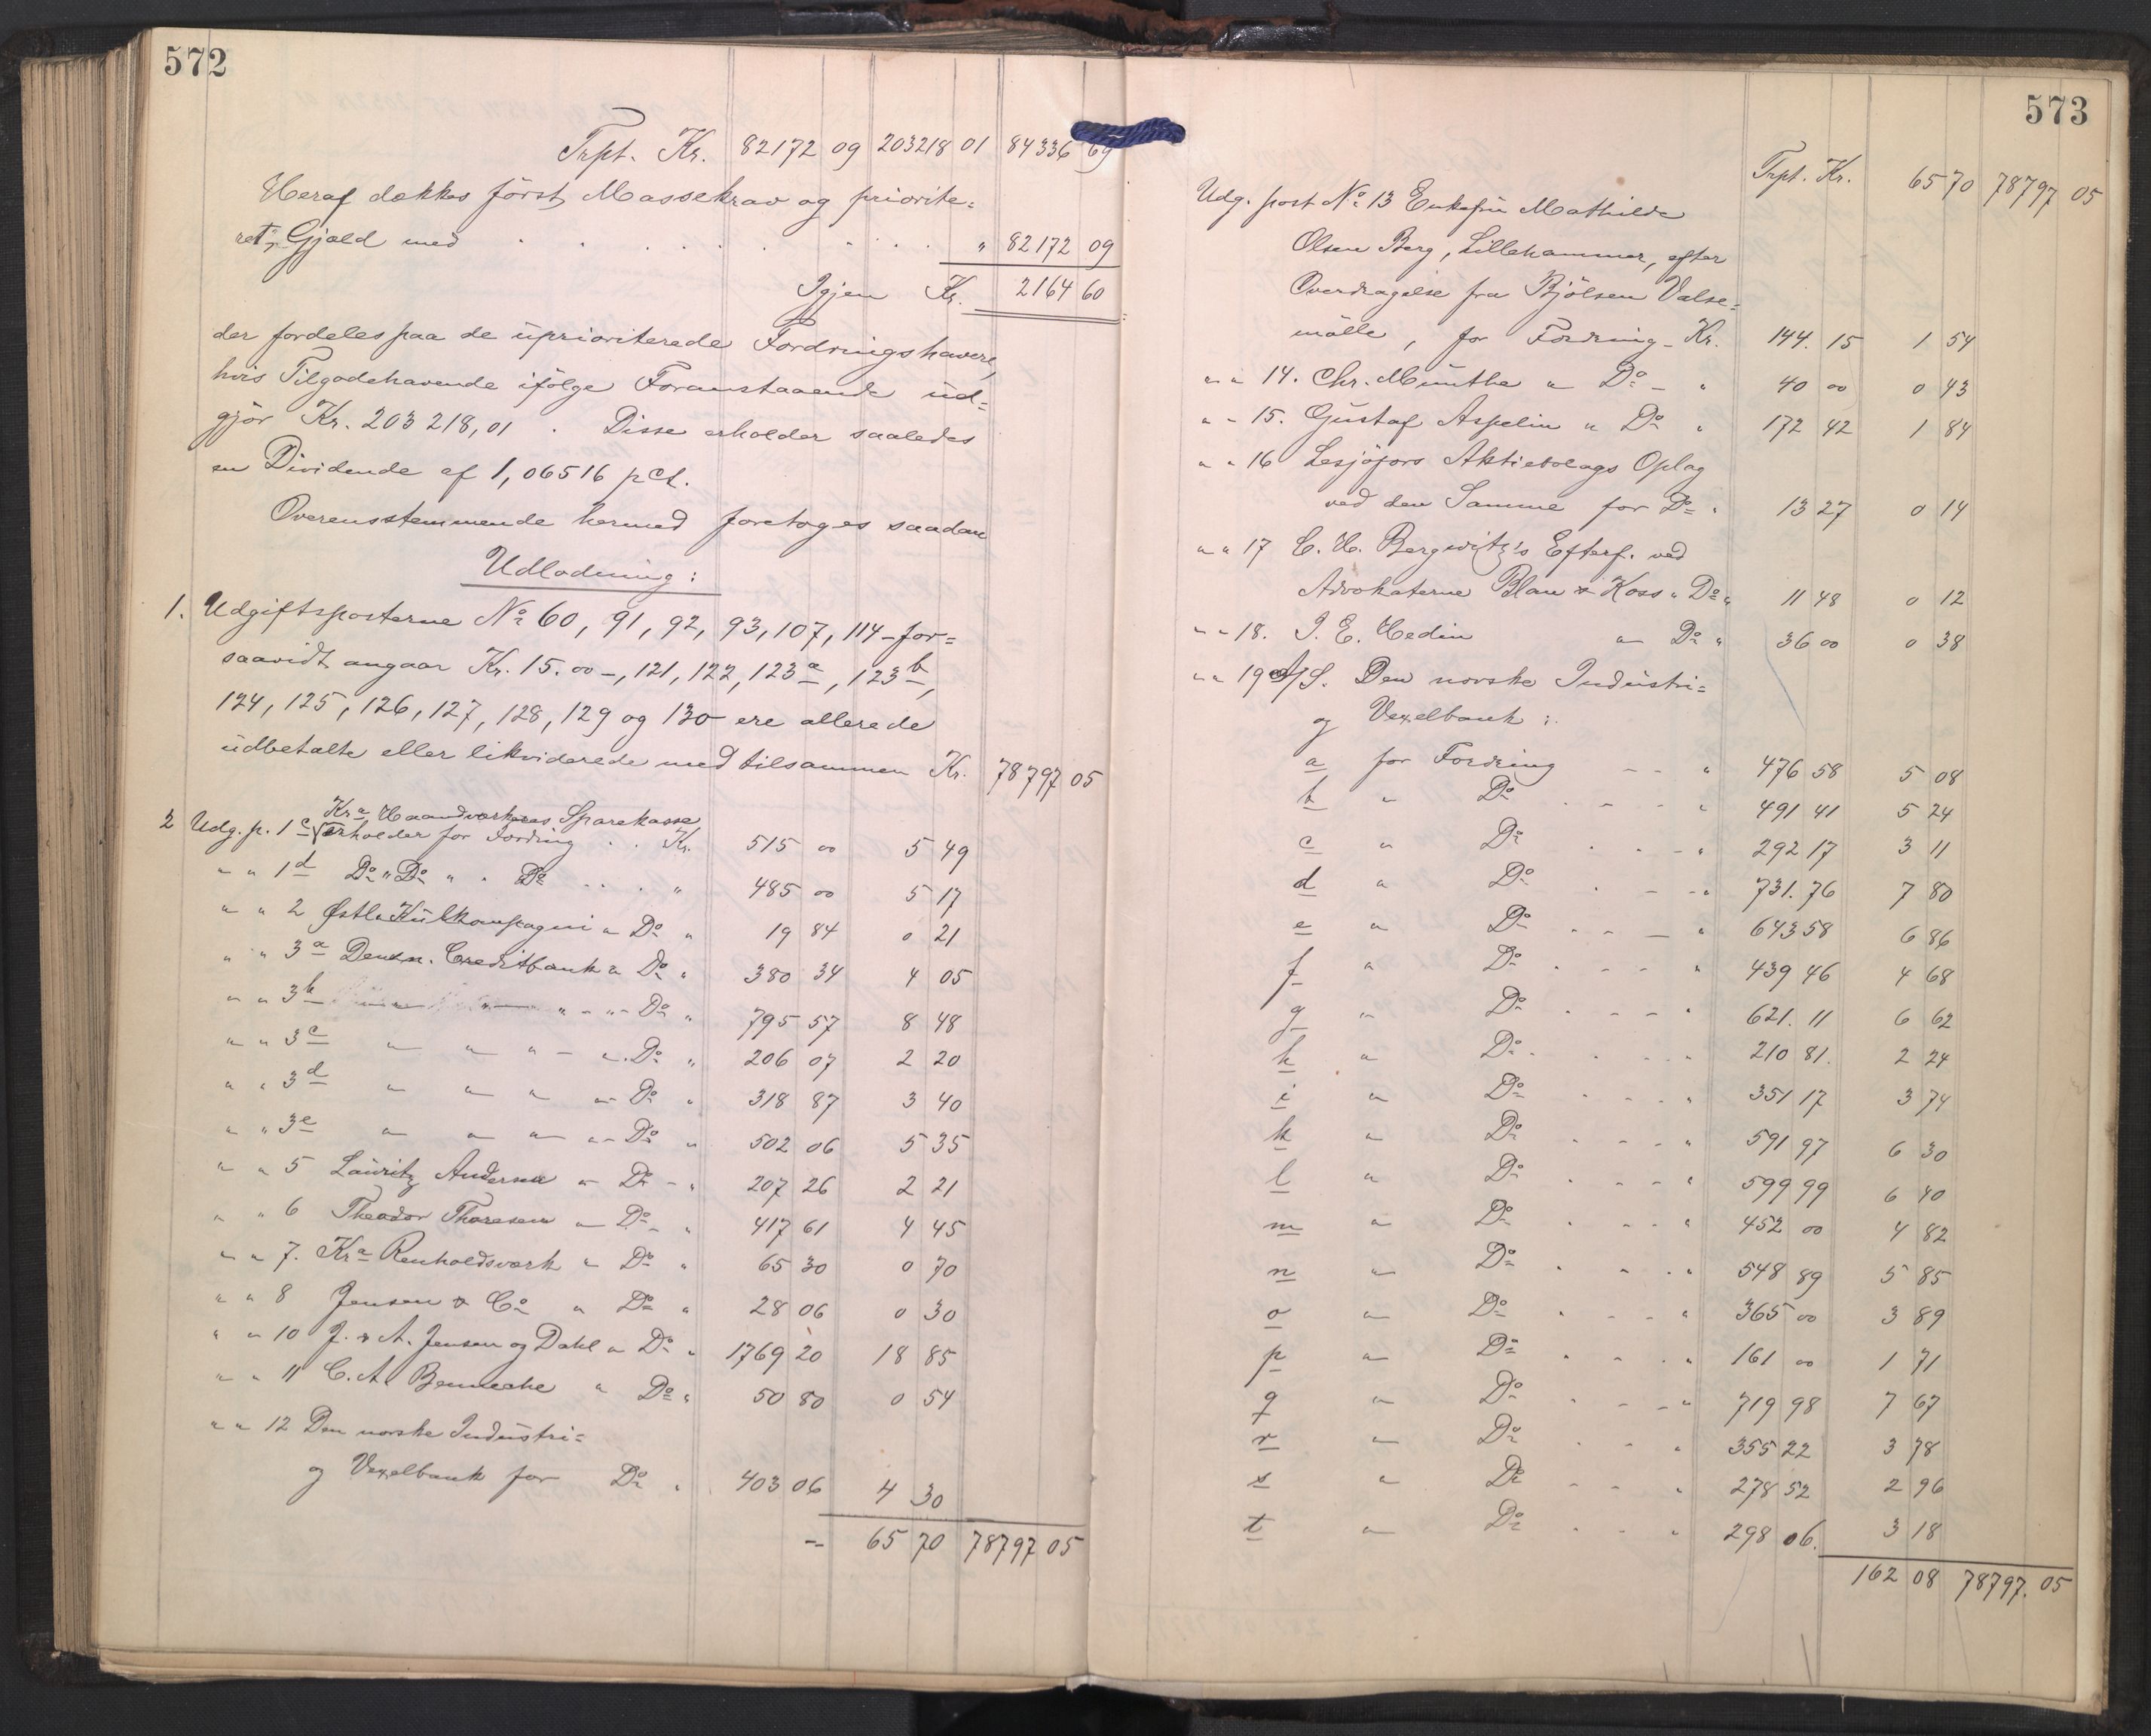 572
Trpt. Kr. 82172 09 203218 01 84336 69
Heraf dækkes först Massekrav og priorite=
ret Gjæld med . . . . . . . . . " 82172 09
Igjen Kr. 2164 60
der fordeles paa de uprioriterede Fordringshavere,
hvis Tilgodehavende ifölge Foranstaaende ud=
gjör Kr. 203218,01. Disse erholder saaledes
en Dividende af 1,06516 pCt.
Overensstemmende hermed foretoges saadan
Udlodning:
1. Udgiftsposterne No 60, 91, 92, 93, 107, 114 - for=
saavidt angaar Kr. 15.00 -, 121, 122, 123a, 123b,
124, 125, 126, 127, 128, 129 og 130 ere allerede
udbetalte eller likviderede med tilsammen Kr. 78797 05
Kra Haandværkeres Sparekasse
2 Udg. p. 1c erholder for Fordring . . Kr. 515 00 5 49
" " 1d Do " Do " . Do . . . . " 485 00 5 17
" " 2 Østl. Kulkompagni " Do " 19 84 0 21
" " 3a Den n. Creditbank " Do " 380 34 4 05
" " 3b " - " - Do " 795 57 8 48
" " 3c " " " - " . Do " 206 07 2 20
" " 3d " " " " - Do " 318 87 3 40
" " 3e " " " " - Do " 502 06 5 35
" " 5 Lauritz Andersen " Do - " 207 26 2 21
" " 6 Theodor Thoresen " Do - " 417 61 4 45
" " 7. Kra Renholdsværk " Do " 65 30 0 70
" " 8 Jensen & Co " Do " 28 06 0 30
" " 10 J. & A. Jensen og Dahl " Do " 1769 20 18 85
" " 11 C. A. Bennecke " Do " 50 80 0 54
" " 12 Den norske Industri=
og Vexelbank for Do " 403 06 4 30
-- 65 70 78797 05
573
Trpt. Kr. 65 70 78797 05
Udg. post No 13 Enkefru Mathilde
Olsen Berg, Lillehammer, efter
Overdragelse fra Bjölsen Valse=
mölle, for Fordring - Kr. 144. 15 1 54
" " 14. Chr. Munthe " Do - " 40 00 0 43
" " 15. Gustaf Aspelin " Do " 172 42 1 84
" " 16 Lesjöfors Aktiebolags Oplag
ved den Samme for Do " 13 27 0 14
" " 17 C. H. Bergwitz's Efterf. ved
Advokaterne Blau & Koss " Do " 11 48 0 12
" " 18. J. E. Hedin " Do " 36 00 0 38
" " 19 A/S. Den norske Industri=
og Vexelbank:
a for Fordring - - " 476 58 5 08
b " Do . - - " 491 41 5 24
c " Do . . - " 292 17 3 11
d " Do . - - " 731. 76 7 80
e " Do . - - " 643 58 6 86
f " Do . - - " 439 46 4 68
g " Do . - - " 621. 11 6 62
h " Do . . - - " 210 81. 2 24
i " Do . - - " 351 17 3 74
k " Do . - - " 591 97 6 30
l " Do . - - " 599 99 6 40
m " Do . - - " 452 00 4 82
n " Do . - . " 548 89 5 85
o " Do . - - " 365 00 3 89
p " Do . - . " 161 00 1 71
q " Do . - - " 719 98 7 67
r " Do . - " 355 22 3 78
s " Do - - " 278 52 2 96
t " Do . - " 298 06. 3 18
162 08 78797. 05